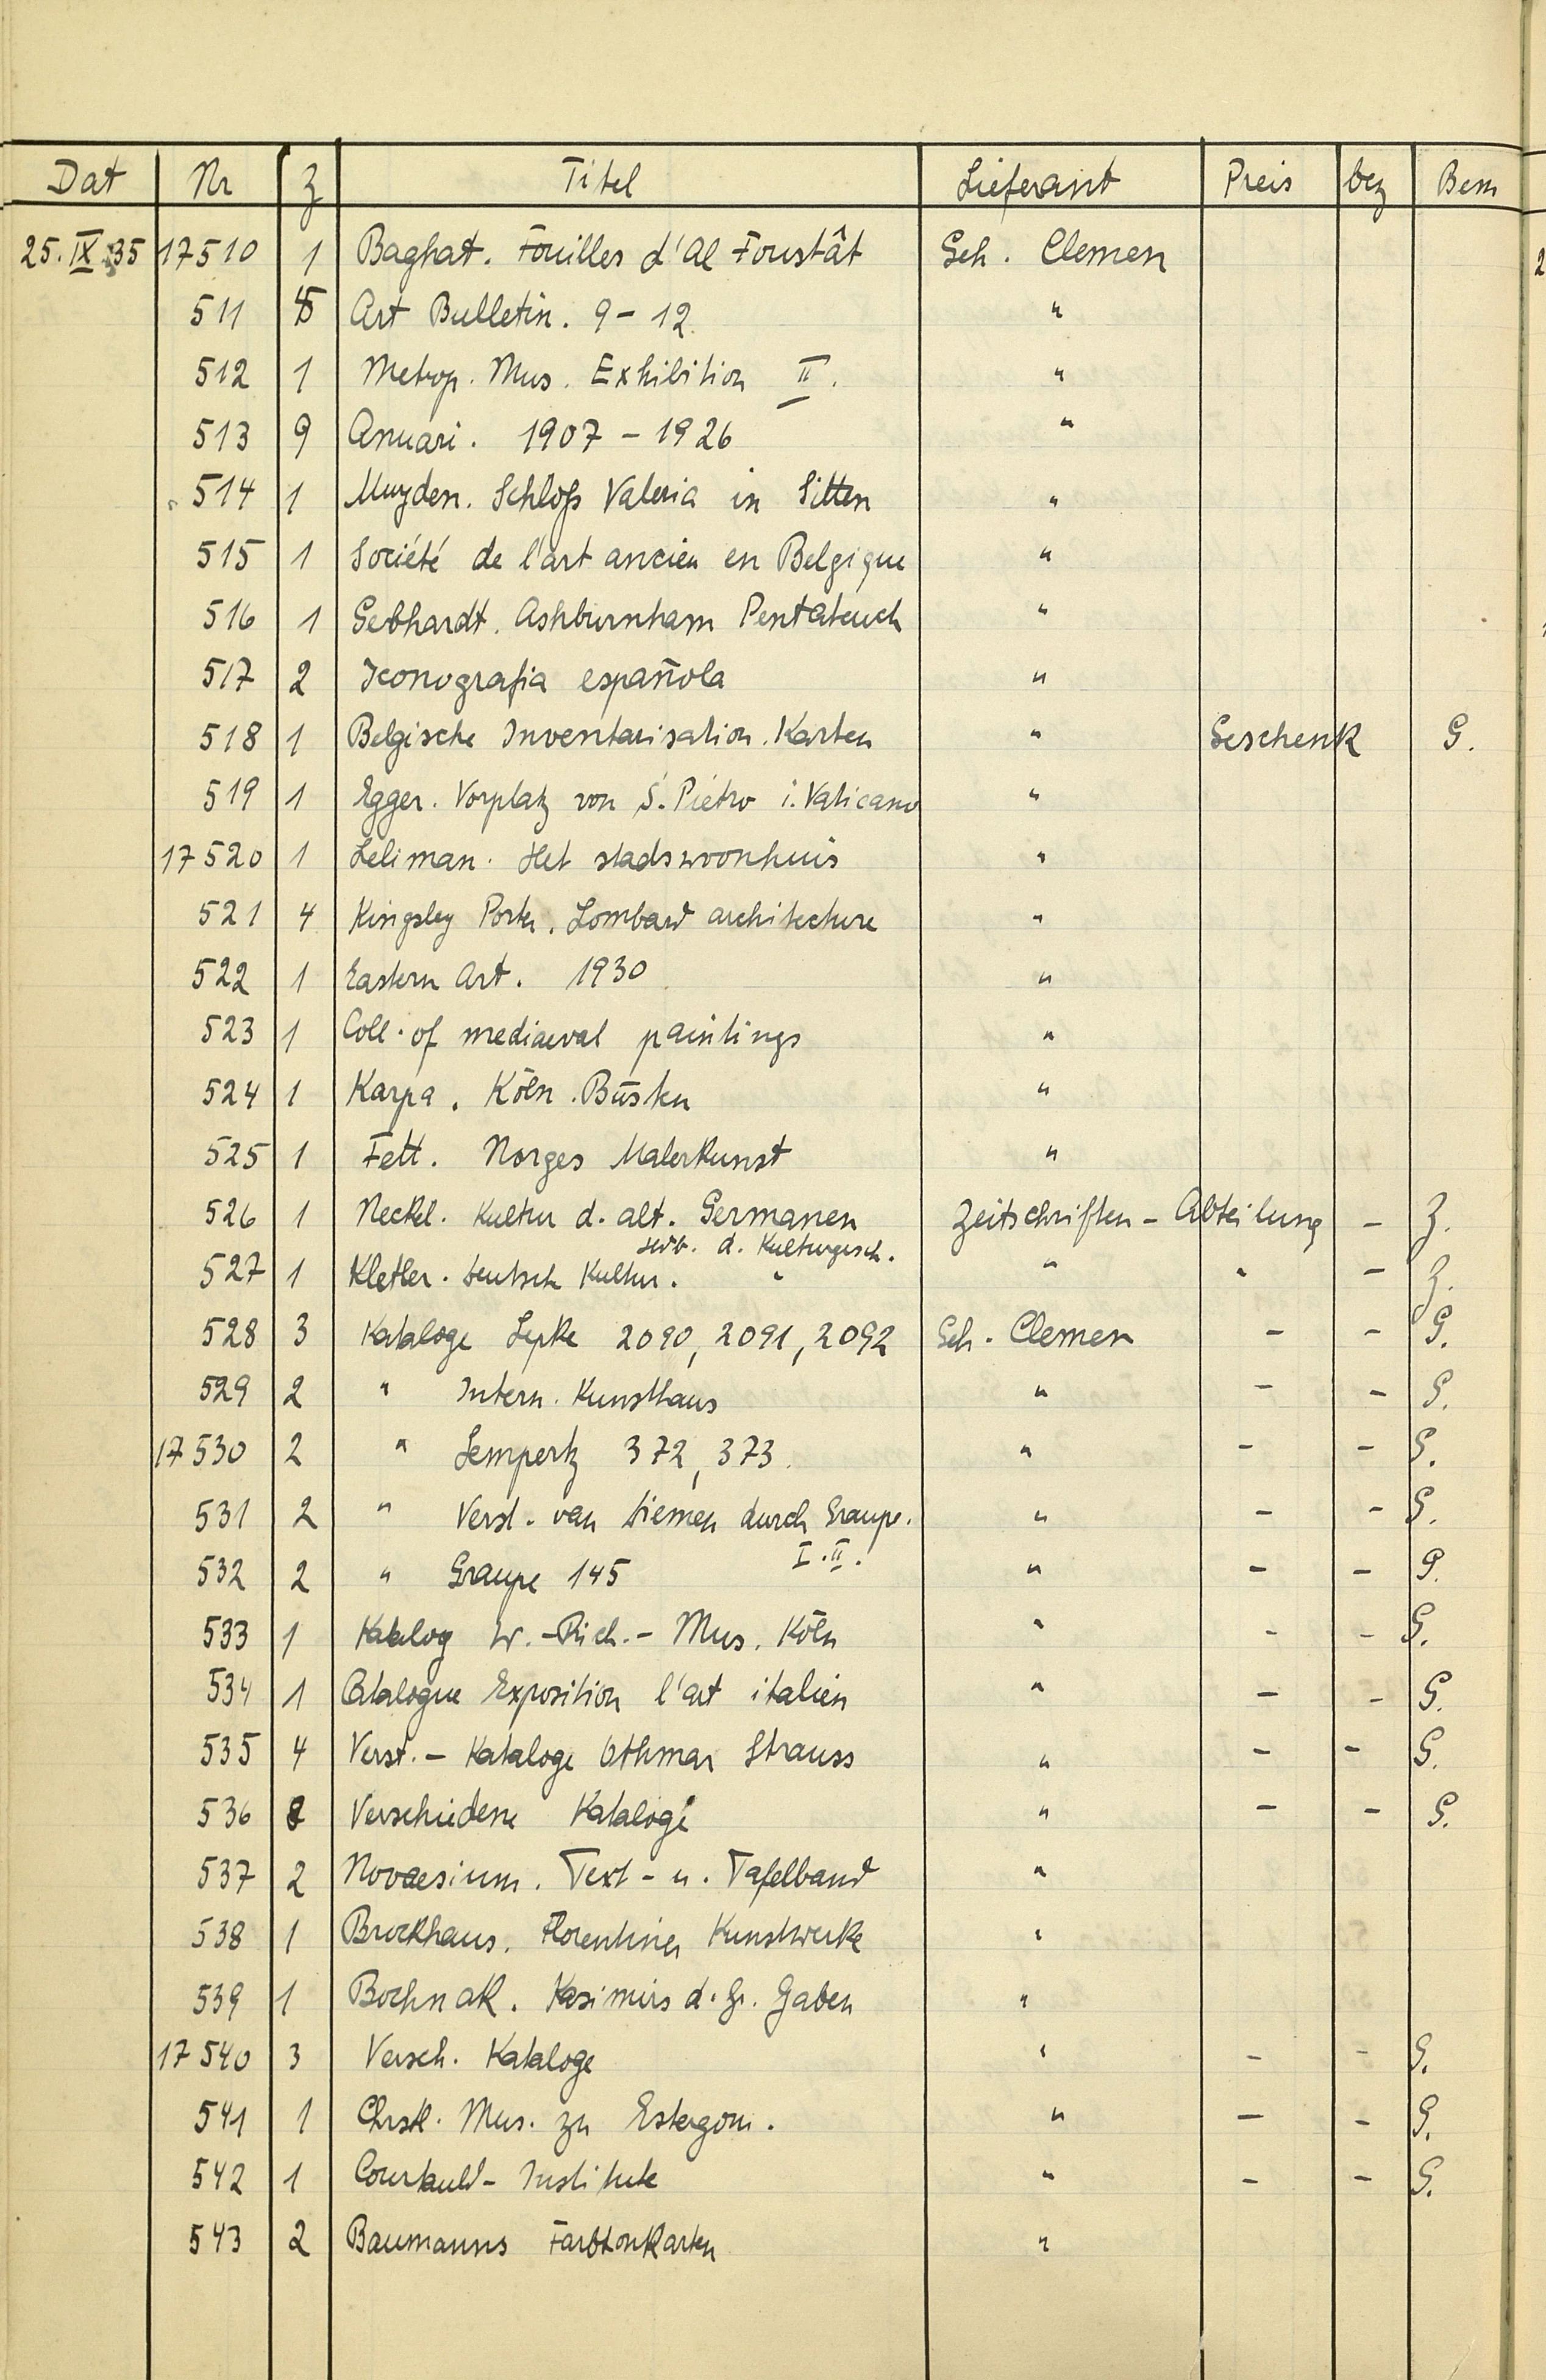 Dat Nr Z Titel Lieferant Preis bez Bem
25.IX.35 17510 1 Baghat. Fouilles d'Al Foustât Geh. Clemen
511 Art Bulletin. 9-12. "
512 1 Metrop. Mus. Exhibition II. "
513 9 Anuari. 1907-1926 "
514 1 Muyden. Schloß Valeria in Sitten "
515 1 Société de l'art ancien en Belgique "
516 1 Gebhardt. Ashburnham Pentateuch "
517 2 Iconografia española "
518 1 Belgische Inventarisation. Karten " Geschenk G.
519 1 Egger. Vorplatz von S. Pietro i. Vaticano "
17520 1 Leliman. Het stadswoonhuis "
521 4 Kingsley Porter. Lombard architecture "
522 1 Eastern Art. 1930 "
523 1 Coll. of mediaeval paintings "
524 1 Karpa. Köln. Büsten "
525 1 Fett. Norges Malerkunst "
526 1 Neckel. Kultur d. alt. Germanen Zeitschriften-Abteilung - Z.
Hdb. d. Kulturgesch.
527 1 Kletler. Deutsch Kultur. " " " - Z.
528 3 Kataloge Lepke 2090, 2091, 2092 Geh. Clemen - - G.
529 2 " Intern. Kunsthaus " - - G.
17530 2 " Lempertz 372, 373. " - - G.
531 2 " Verst. van Diemen durch Graupe. " - - G.
I. II.
532 2 " Graupe 145 " - - G.
533 1 Katalog W.-Rich.-Mus. Köln " - - G.
534 1 Catalogue Exposition l'art italien " - - G.
535 4 Verst.-Kataloge Othmar Strauss " - - G.
536 8 Verschiedene Kataloge " - - G.
537 2 Novaesium. Text- u. Tafelband "
538 1 Brockhaus. Florentiner Kunstwerke "
539 1 Bochnak. Kasimirs d. Gr. Gaben "
17540 3 Versch. Kataloge " - - G.
541 1 Chrstl. Mus. zu Estergom. " - - G.
542 1 Courtauld-Institute " - - G.
543 2 Baumanns Farbtonkarten "